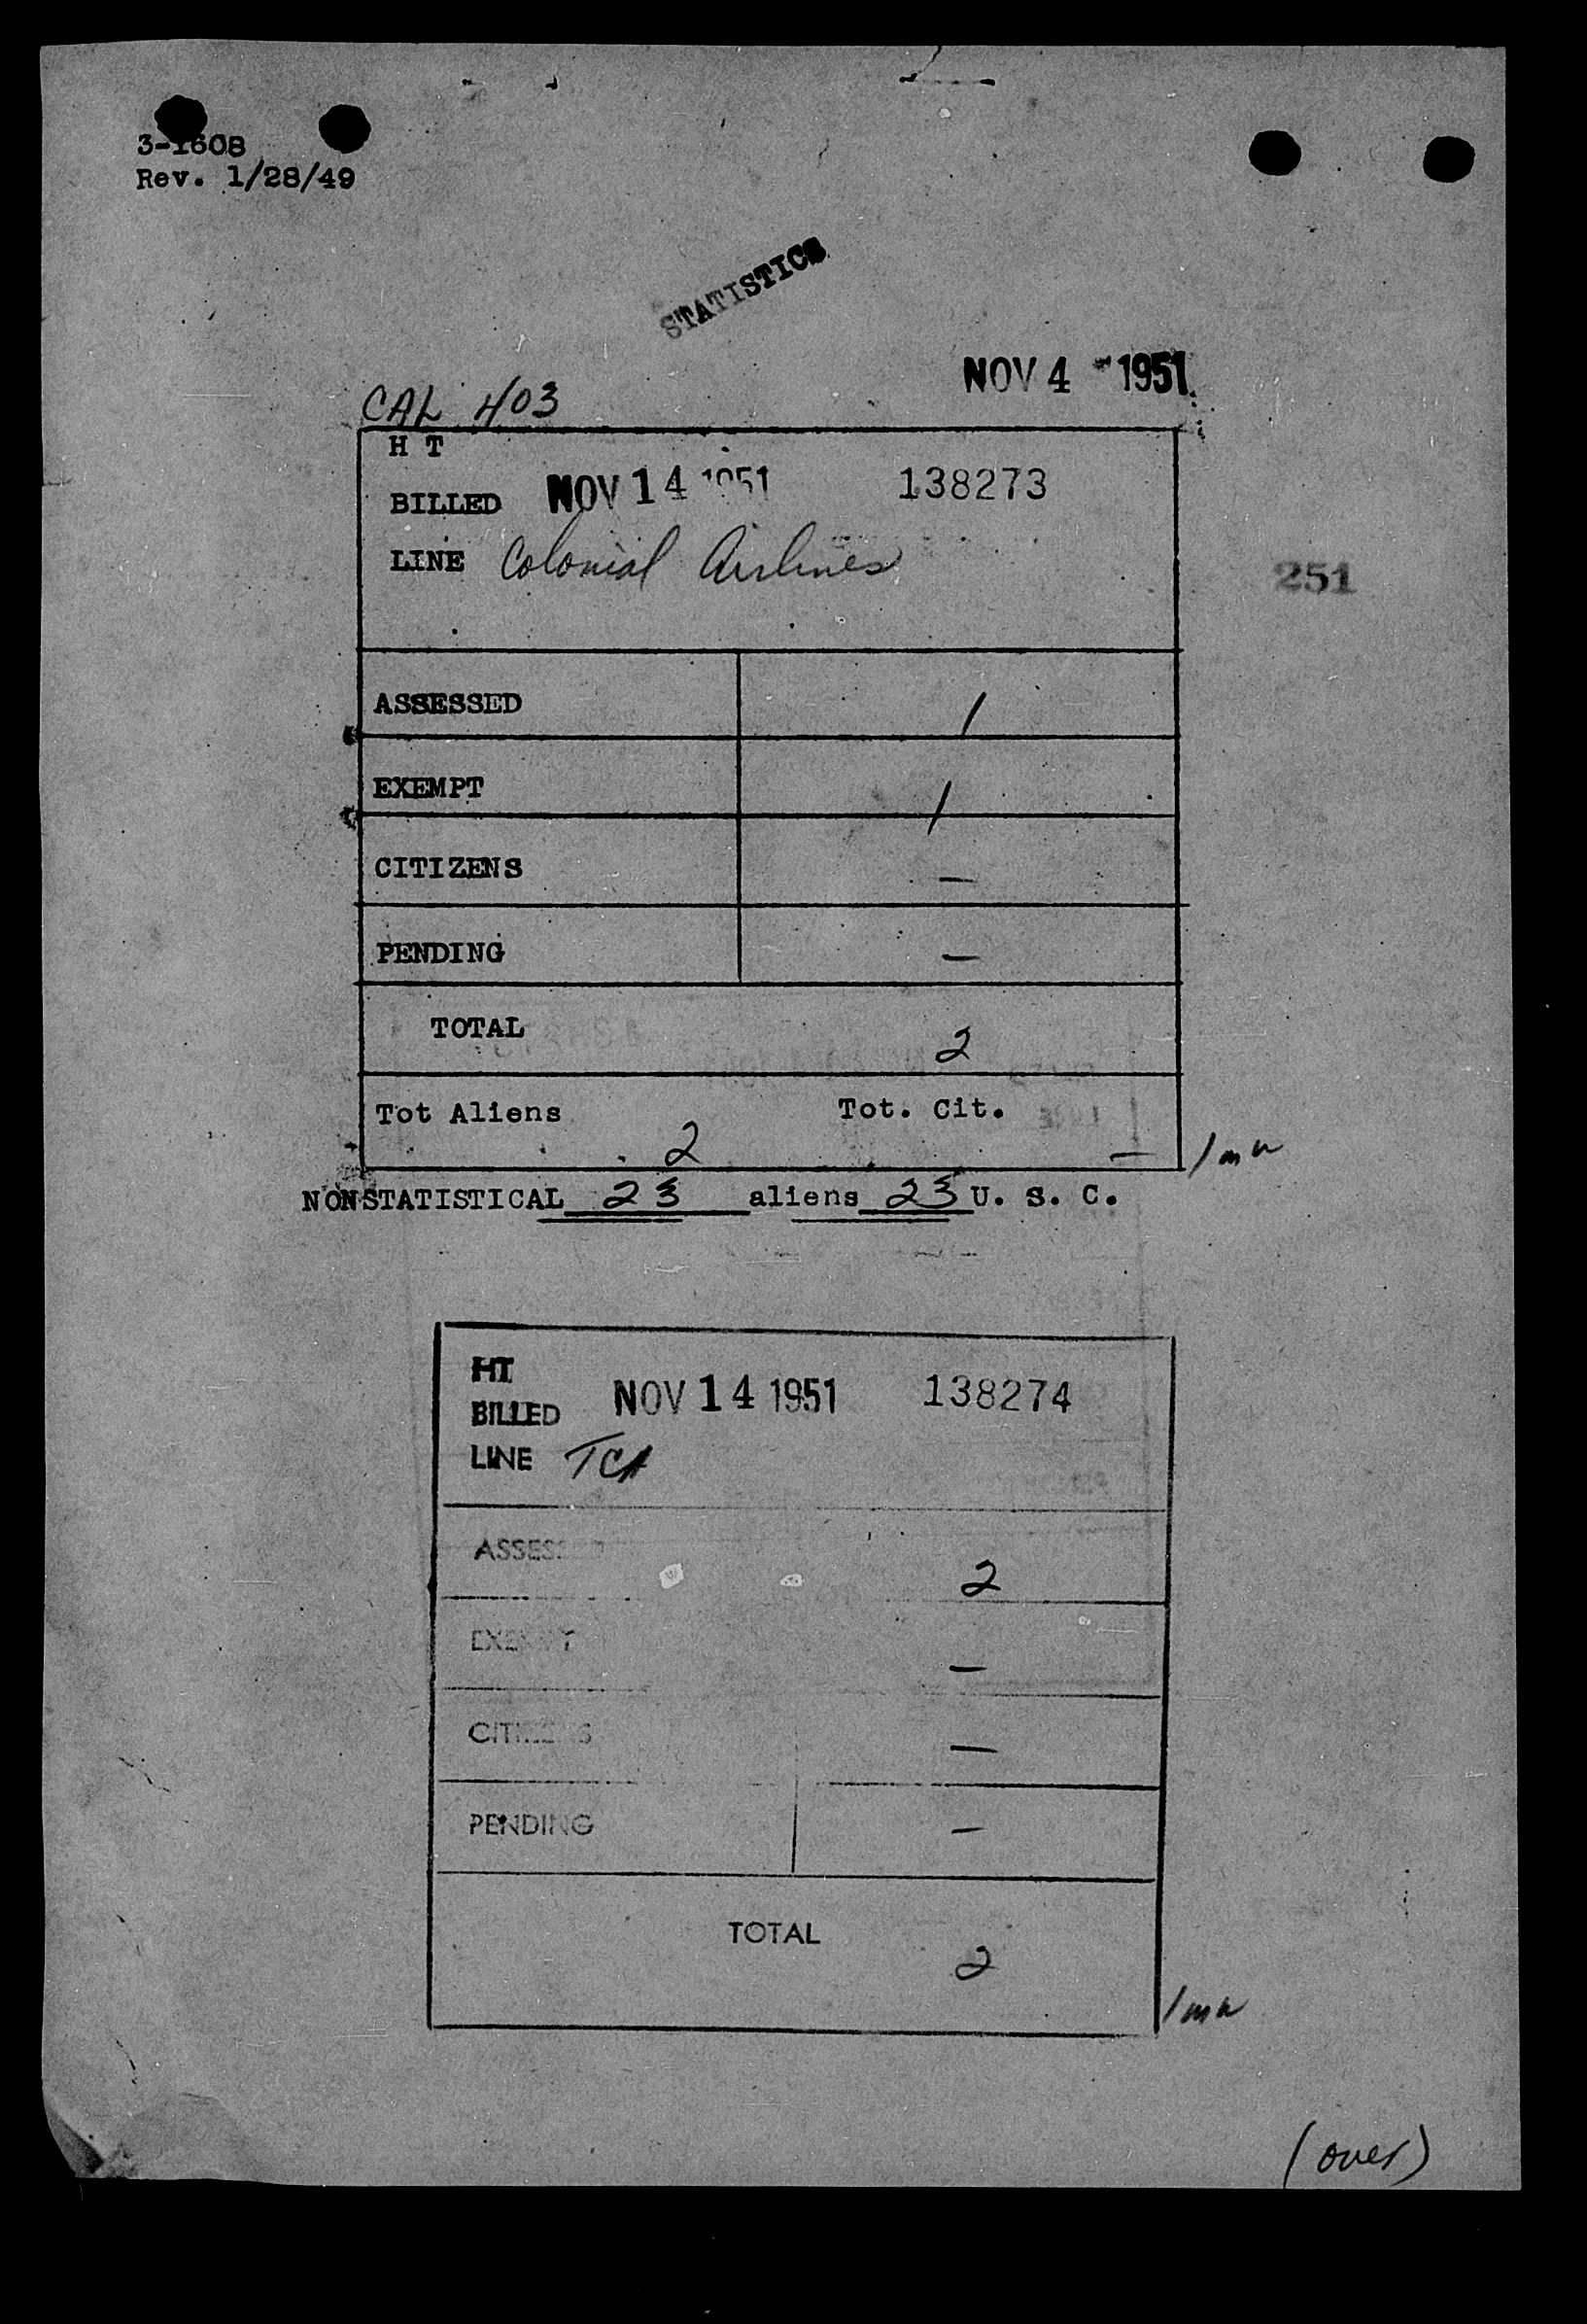 3-1608
Rev. 1/28/49
STATISTICS
NOV 4 - 1951
CAL 403
H T
BILLED NOV 14 1951 138273
LINE Colonial Airlines
251
ASSESSED 1
EXEMPT 1
CITIZENS —
PENDING —
TOTAL 2
Tot Aliens 2 Tot. Cit. —
NONSTATISTICAL 23 aliens 23 U. S. C.
HT
BILLED NOV 14 1951 138274
LINE TCA
ASSESSED 2
EXEMPT —
CITIZENS —
PENDING —
TOTAL 2
(over)